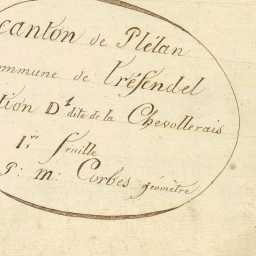 canton de Plélan
ommune de Tréfendel
tion D.te dite de la Chevollerais
1.re feuille
P: m: Corbes géomètre